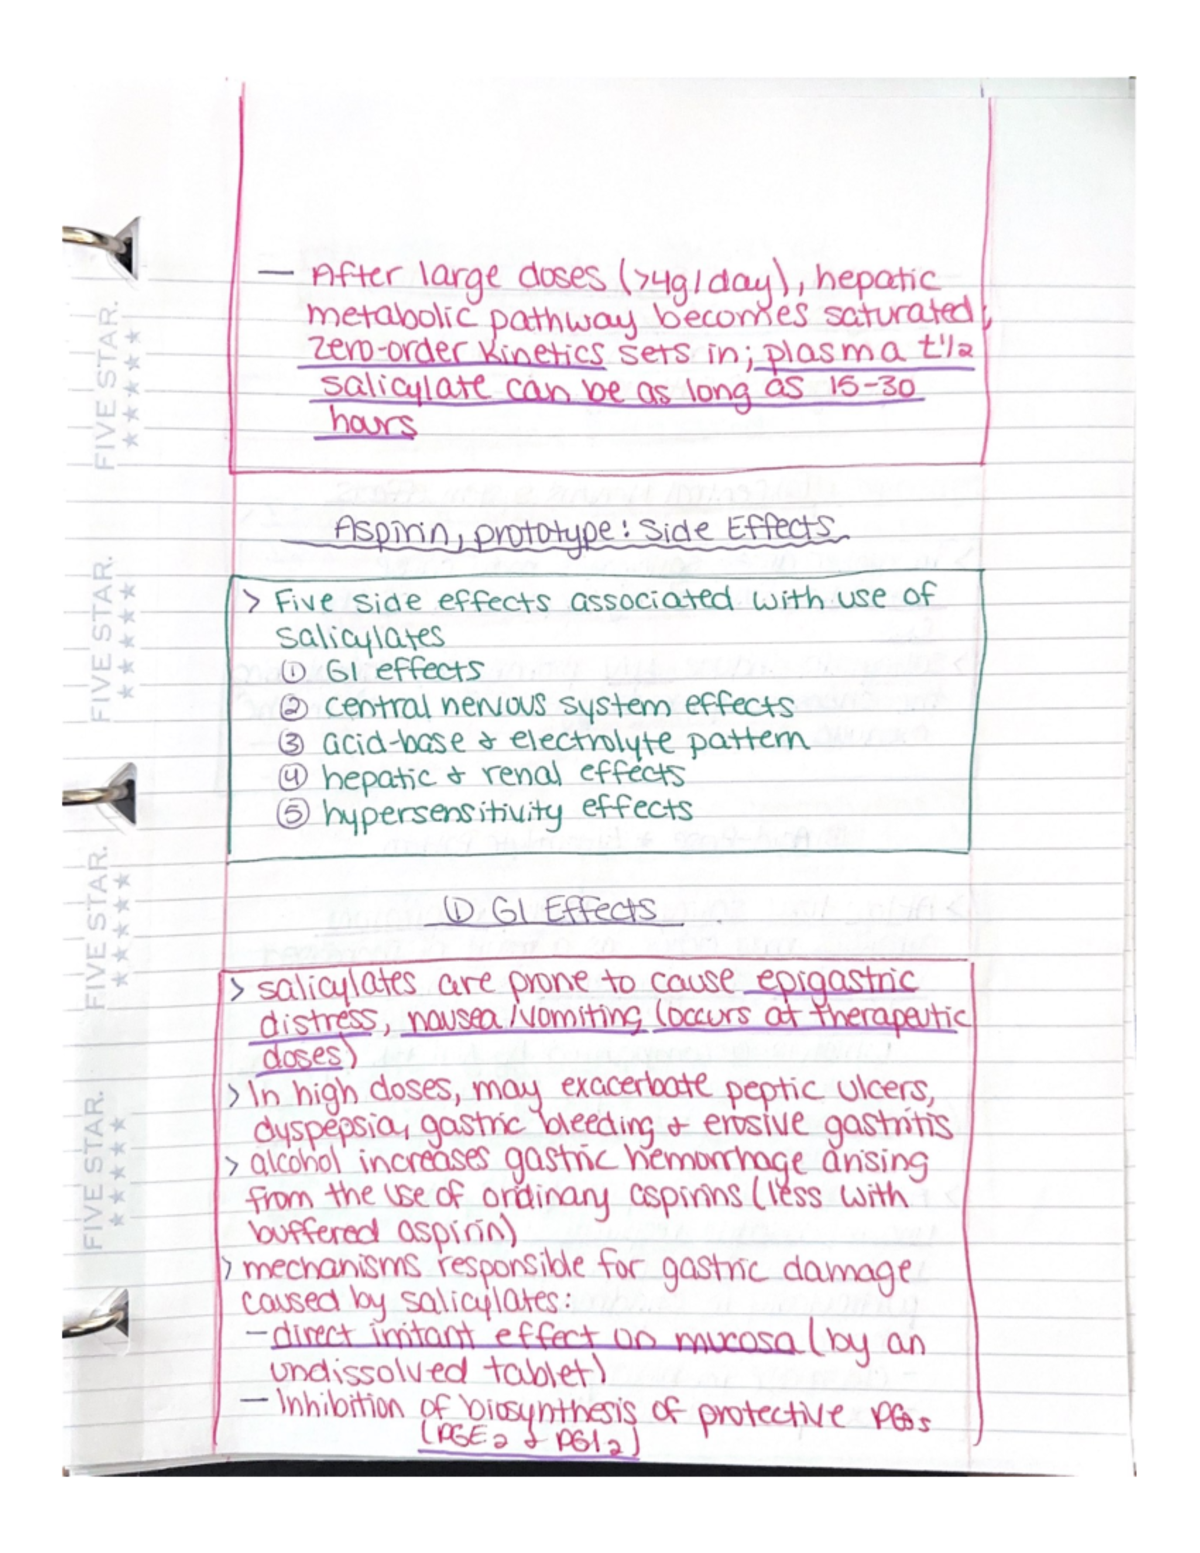 — After large doses (>4g/day), hepatic
metabolic pathway becomes saturated,
zero-order kinetics sets in; plasma t1/2
salicylate can be as long as 15-30
hours
Aspirin, prototype: Side Effects
> Five side effects associated with use of
salicylates
① GI effects
② central nervous system effects
③ acid-base & electrolyte pattern
④ hepatic & renal effects
⑤ hypersensitivity effects
① GI Effects
> salicylates are prone to cause epigastric
distress, nausea/vomiting (occurs at therapeutic
doses)
> In high doses, may exacerbate peptic ulcers,
dyspepsia, gastric bleeding & erosive gastritis
> alcohol increases gastric hemorrhage arising
from the use of ordinary aspirins (less with
buffered aspirin)
> mechanisms responsible for gastric damage
caused by salicylates:
- direct irritant effect on mucosa (by an
undissolved tablet)
— Inhibition of biosynthesis of protective PGs
(PGE2 & PGI2)
FIVE STAR.
FIVE STAR.
FIVE STAR.
FIVE STAR.